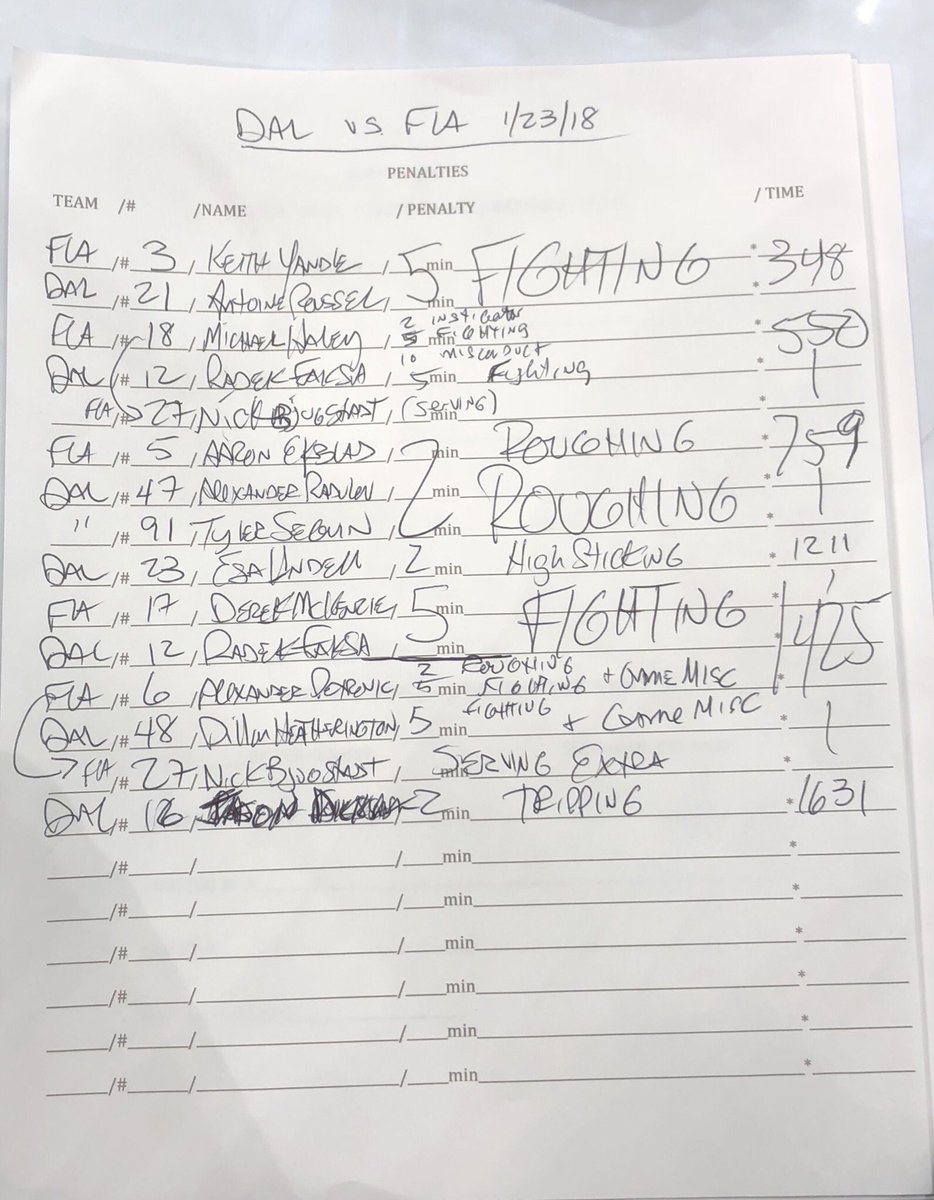 DAL vs. FLA 1/23/18
PENALTIES
TEAM /# /NAME / PENALTY / TIME
FLA /# 3 / KEITH YANDLE / 5 min FIGHTING * 348
DAL /# 21 / ANTOINE ROUSSEL / min *
FLA /# 18 / MICHAEL HALEY / 2 INSTIGATOR 5 min FIGHTING 10 MISCONDUCT * 550
DAL /# 12 / RADEK FAKSA / 5 min Fighting *
FLA /# 27 / NICK BJUGSTAD / (SERVING) min *
FLA /# 5 / AARON EKBLAD / 2 min ROUGHING * 759
DAL /# 47 / ALEXANDER RADULOV / min ROUGHING *
" /# 91 / TYLER SEGUIN / min *
DAL /# 23 / ESA LINDELL / 2 min High Sticking * 1211
FLA /# 17 / DEREK MCKENZIE / 5 min FIGHTING * 1425
DAL /# 12 / RADEK FAKSA / min *
FLA /# 6 / ALEXANDER PETROVIC / 2 ROUGHING 5 min FIGHTING + GAME MISC *
DAL /# 48 / Dillon HEATHERINGTON / 5 min FIGHTING + Game MISC *
FLA /# 27 / NICK BJUGSTAD / min SERVING EXTRA *
DAL /# 16 / / 2 min TRIPPING * 1631
/# / / min *
/# / / min *
/# / / min *
/# / / min *
/# / / min *
/# / / min *